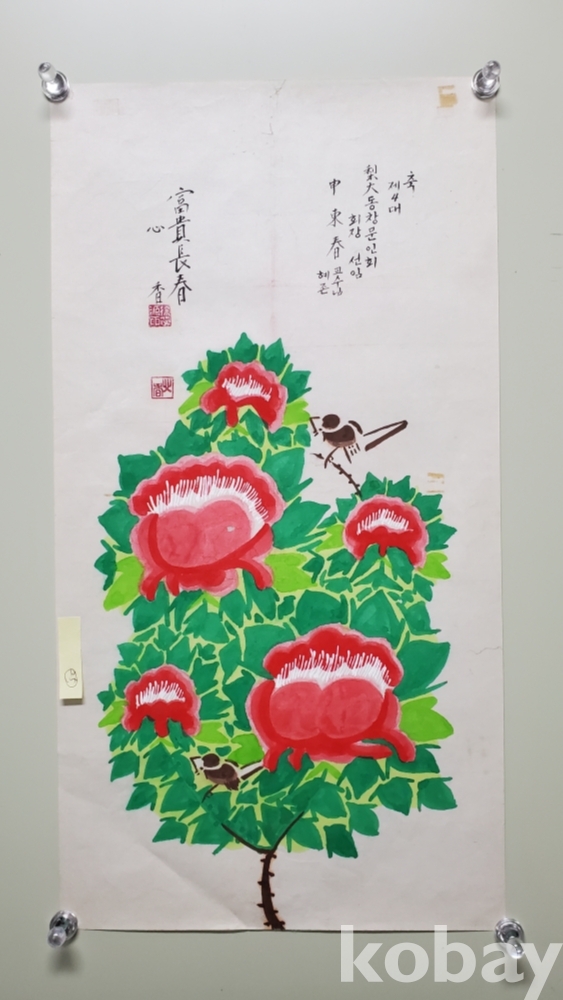 축
제4대
梨大동창문인회
회장 선임
申東春 교수님
혜존
富貴長春
心香
kobay